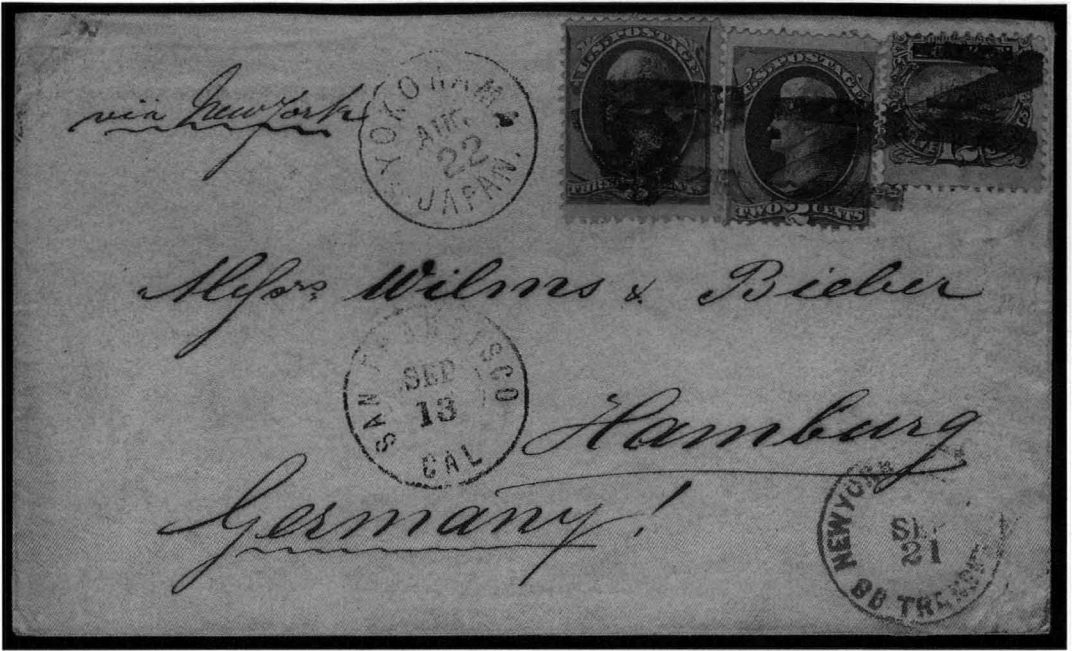 via New York
YOKOHAMA
AUG.
22
JAPAN.
U.S. POSTAGE
THREE 3 CENTS
U.S. POSTAGE
TWO 2 CENTS
12
Messrs Wilms & Bieber
SAN FRANCISCO
SEP
13
CAL
Hamburg
Germany!
NEW YORK
SEP
21
BB TRANSIT